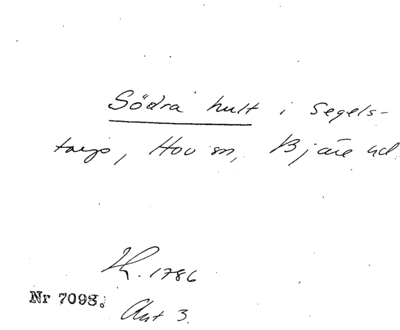 Södra hult i Segels-
torp, Hov sn, Bjäre hd.
Lh. 1786
Nr 7098. Akt 3.